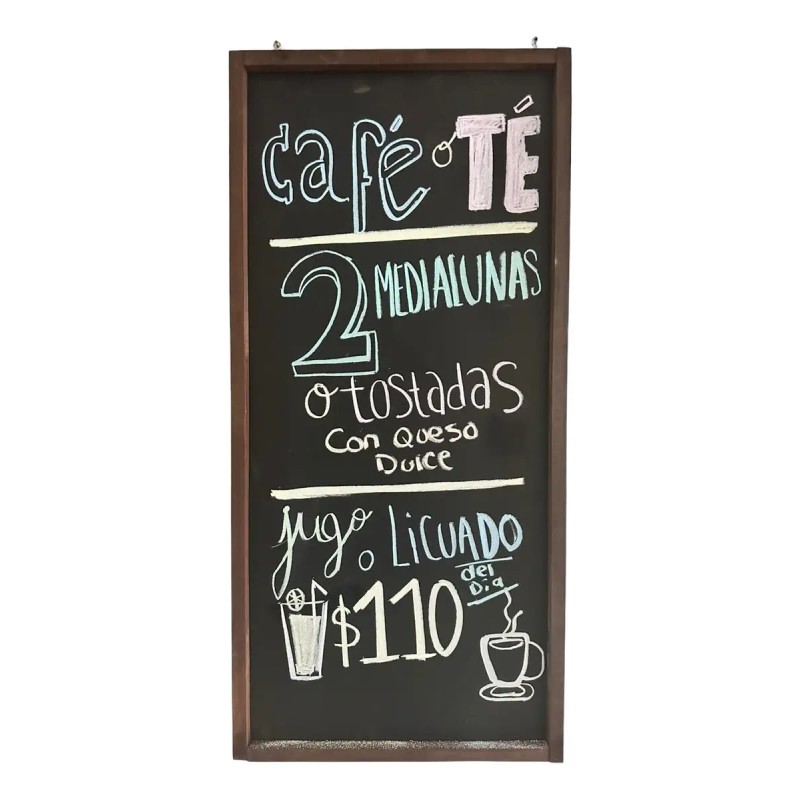 café o TÉ
2 MEDIALUNAS
o tostadas
Con Queso
Dulce
jugo o LiCUADO
del
Día
$110